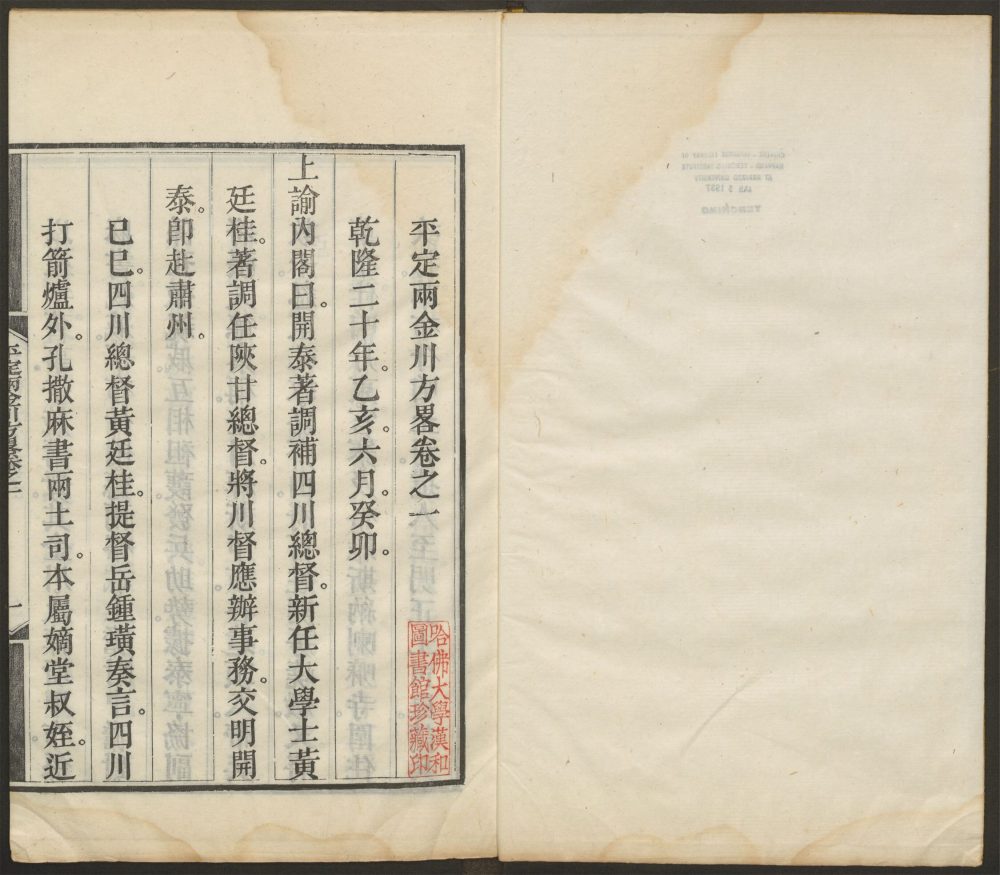 平定兩金川方畧卷之一
乾隆二十年。乙亥。六月。癸卯。
上諭內閣曰。開泰著調補四川總督。新任大學士黃
廷桂。著調任陝甘總督。將川督應辦事務。交明開
泰。卽赴肅州。
己巳。四川總督黃廷桂。提督岳鍾璜奏言。四川
打箭爐外。孔撒麻書兩土司。本屬嫡堂叔姪。近
平定兩金川方畧卷之一
一
哈佛大學漢和
圖書館珍藏印
CHINESE - JAPANESE LIBRARY OF
HARVARD - YENCHING INSTITUTE
AT HARVARD UNIVERSITY
JAN 2 1937